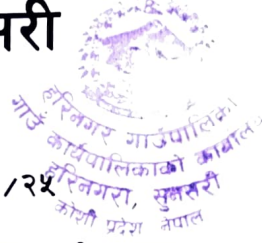 सरी
हरिनगर गाउँपालिका
गाउँ कार्यपालिकाको कार्यालय
/२५
हरिनगरा, सुनसरी
कोशी प्रदेश नेपाल